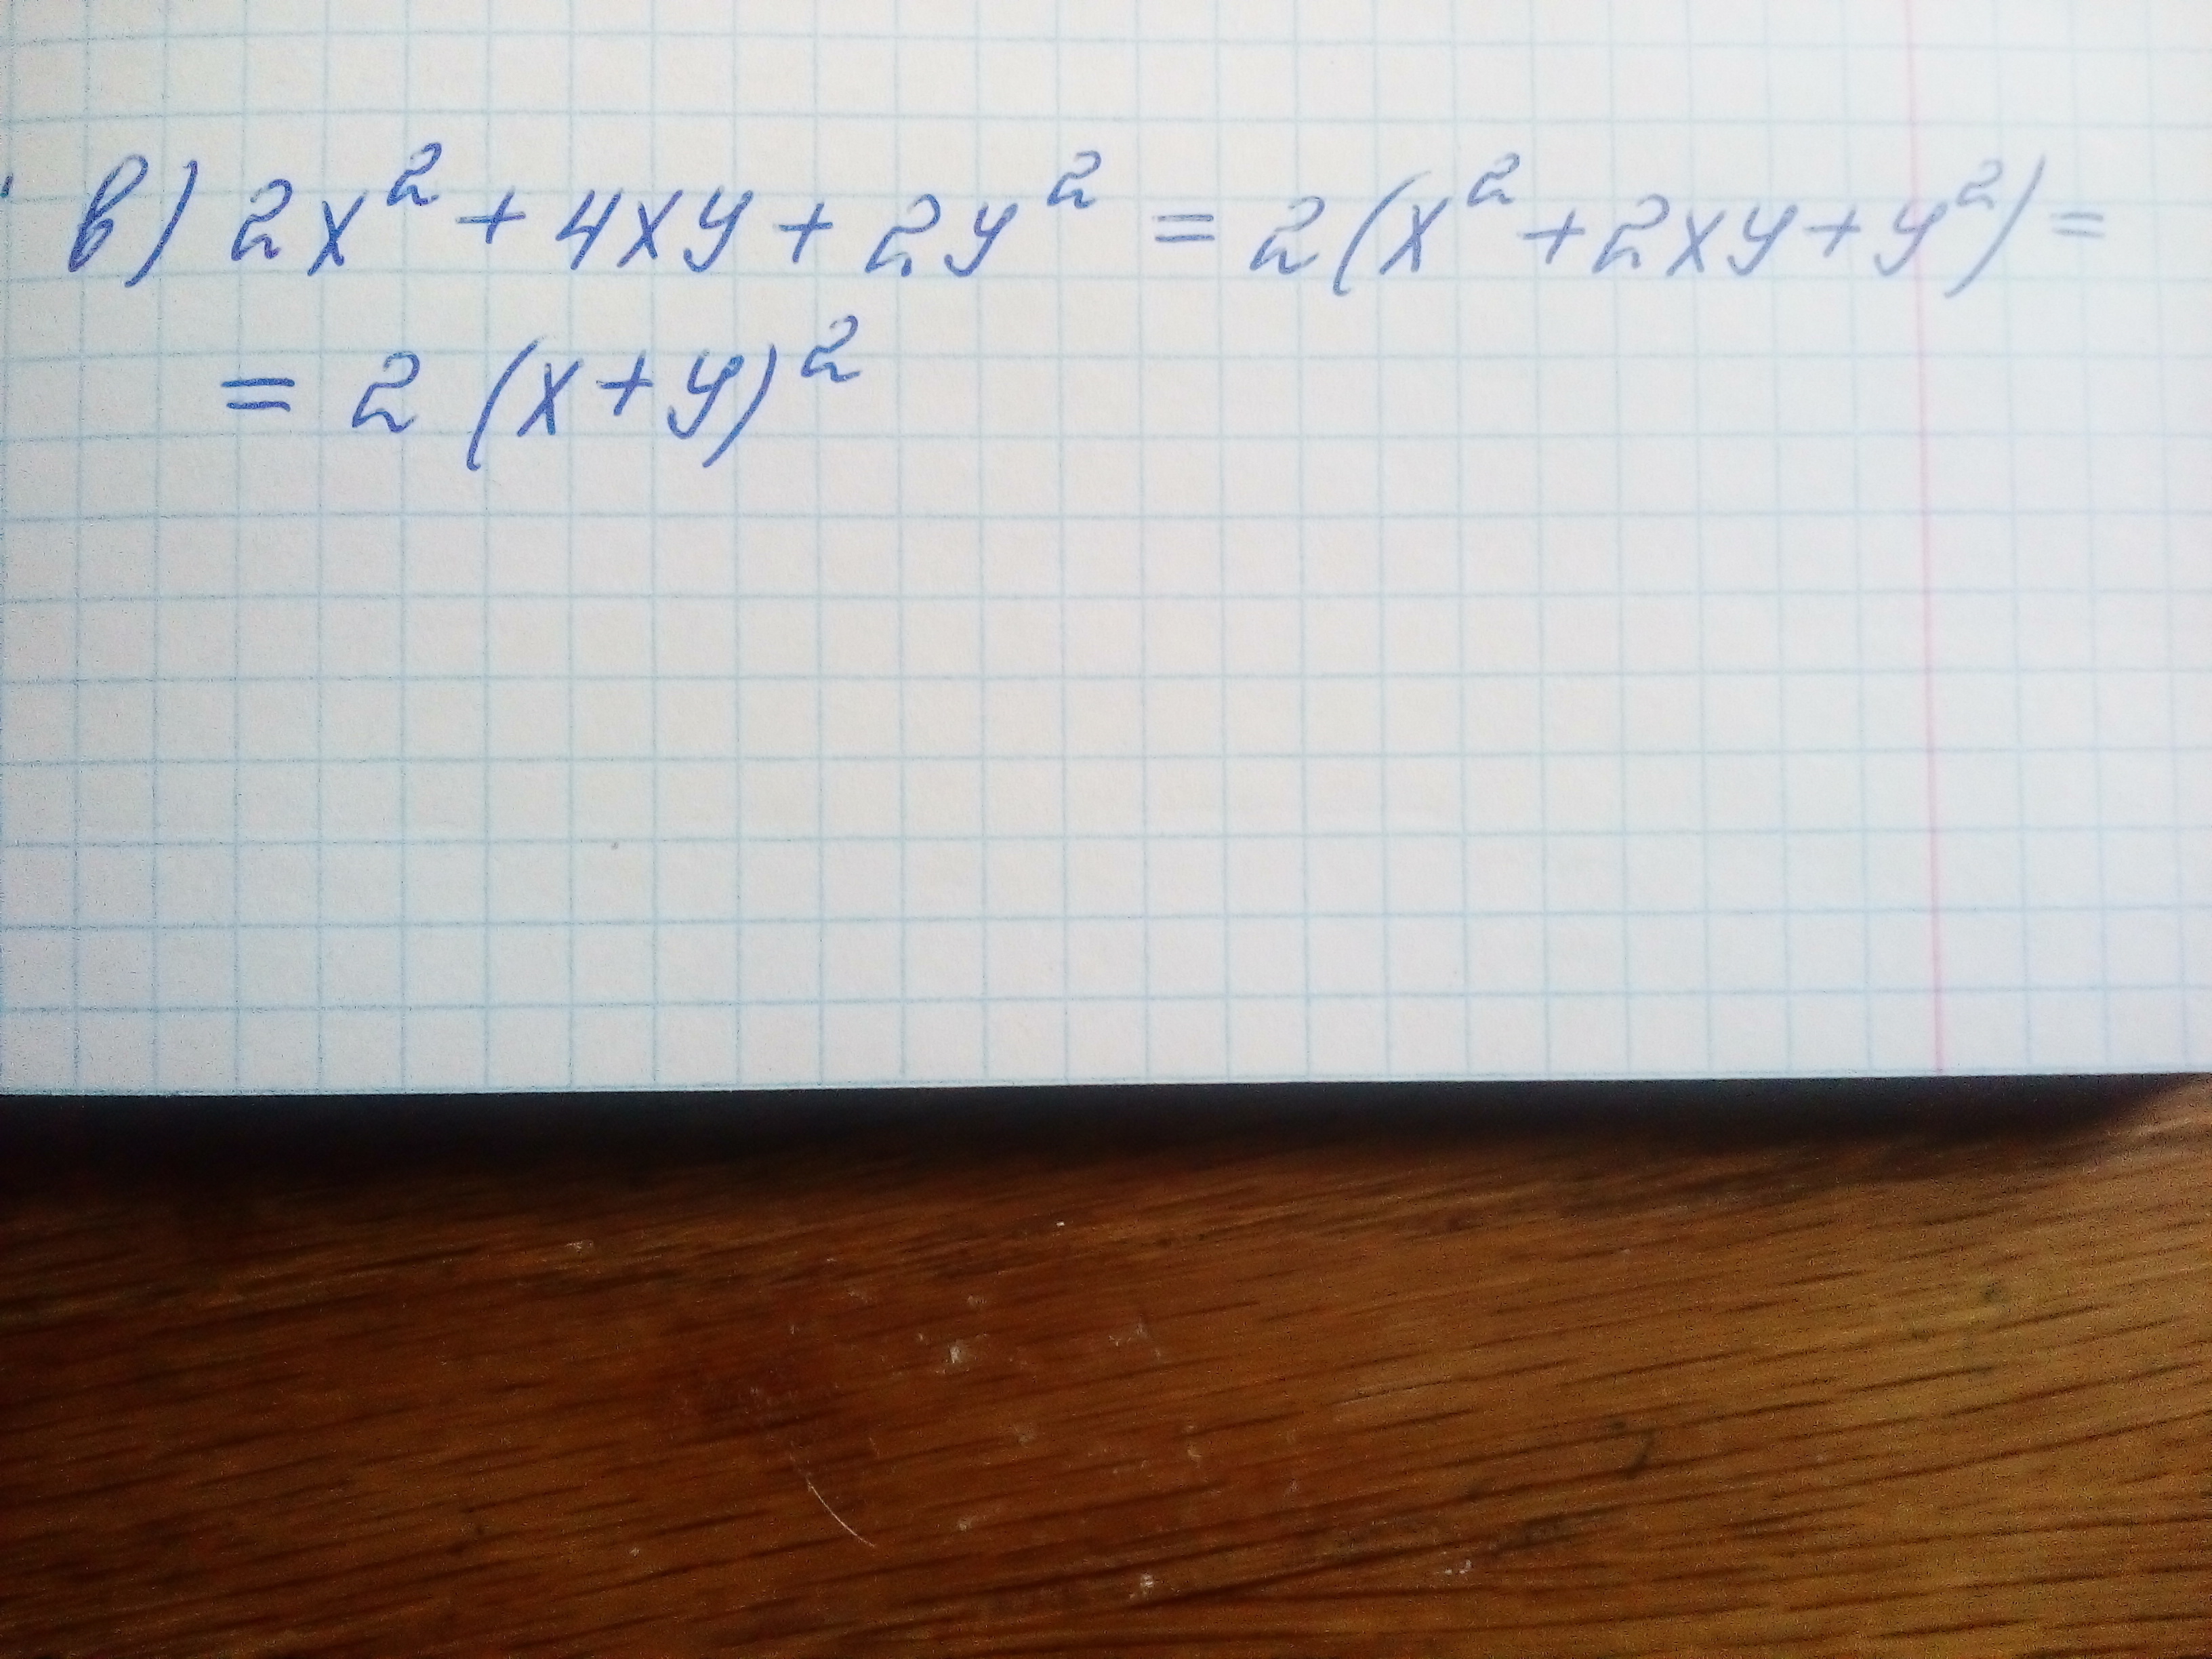 в) 2x² + 4xy + 2y² = 2(x² + 2xy + y²) =
= 2 (x + y)²